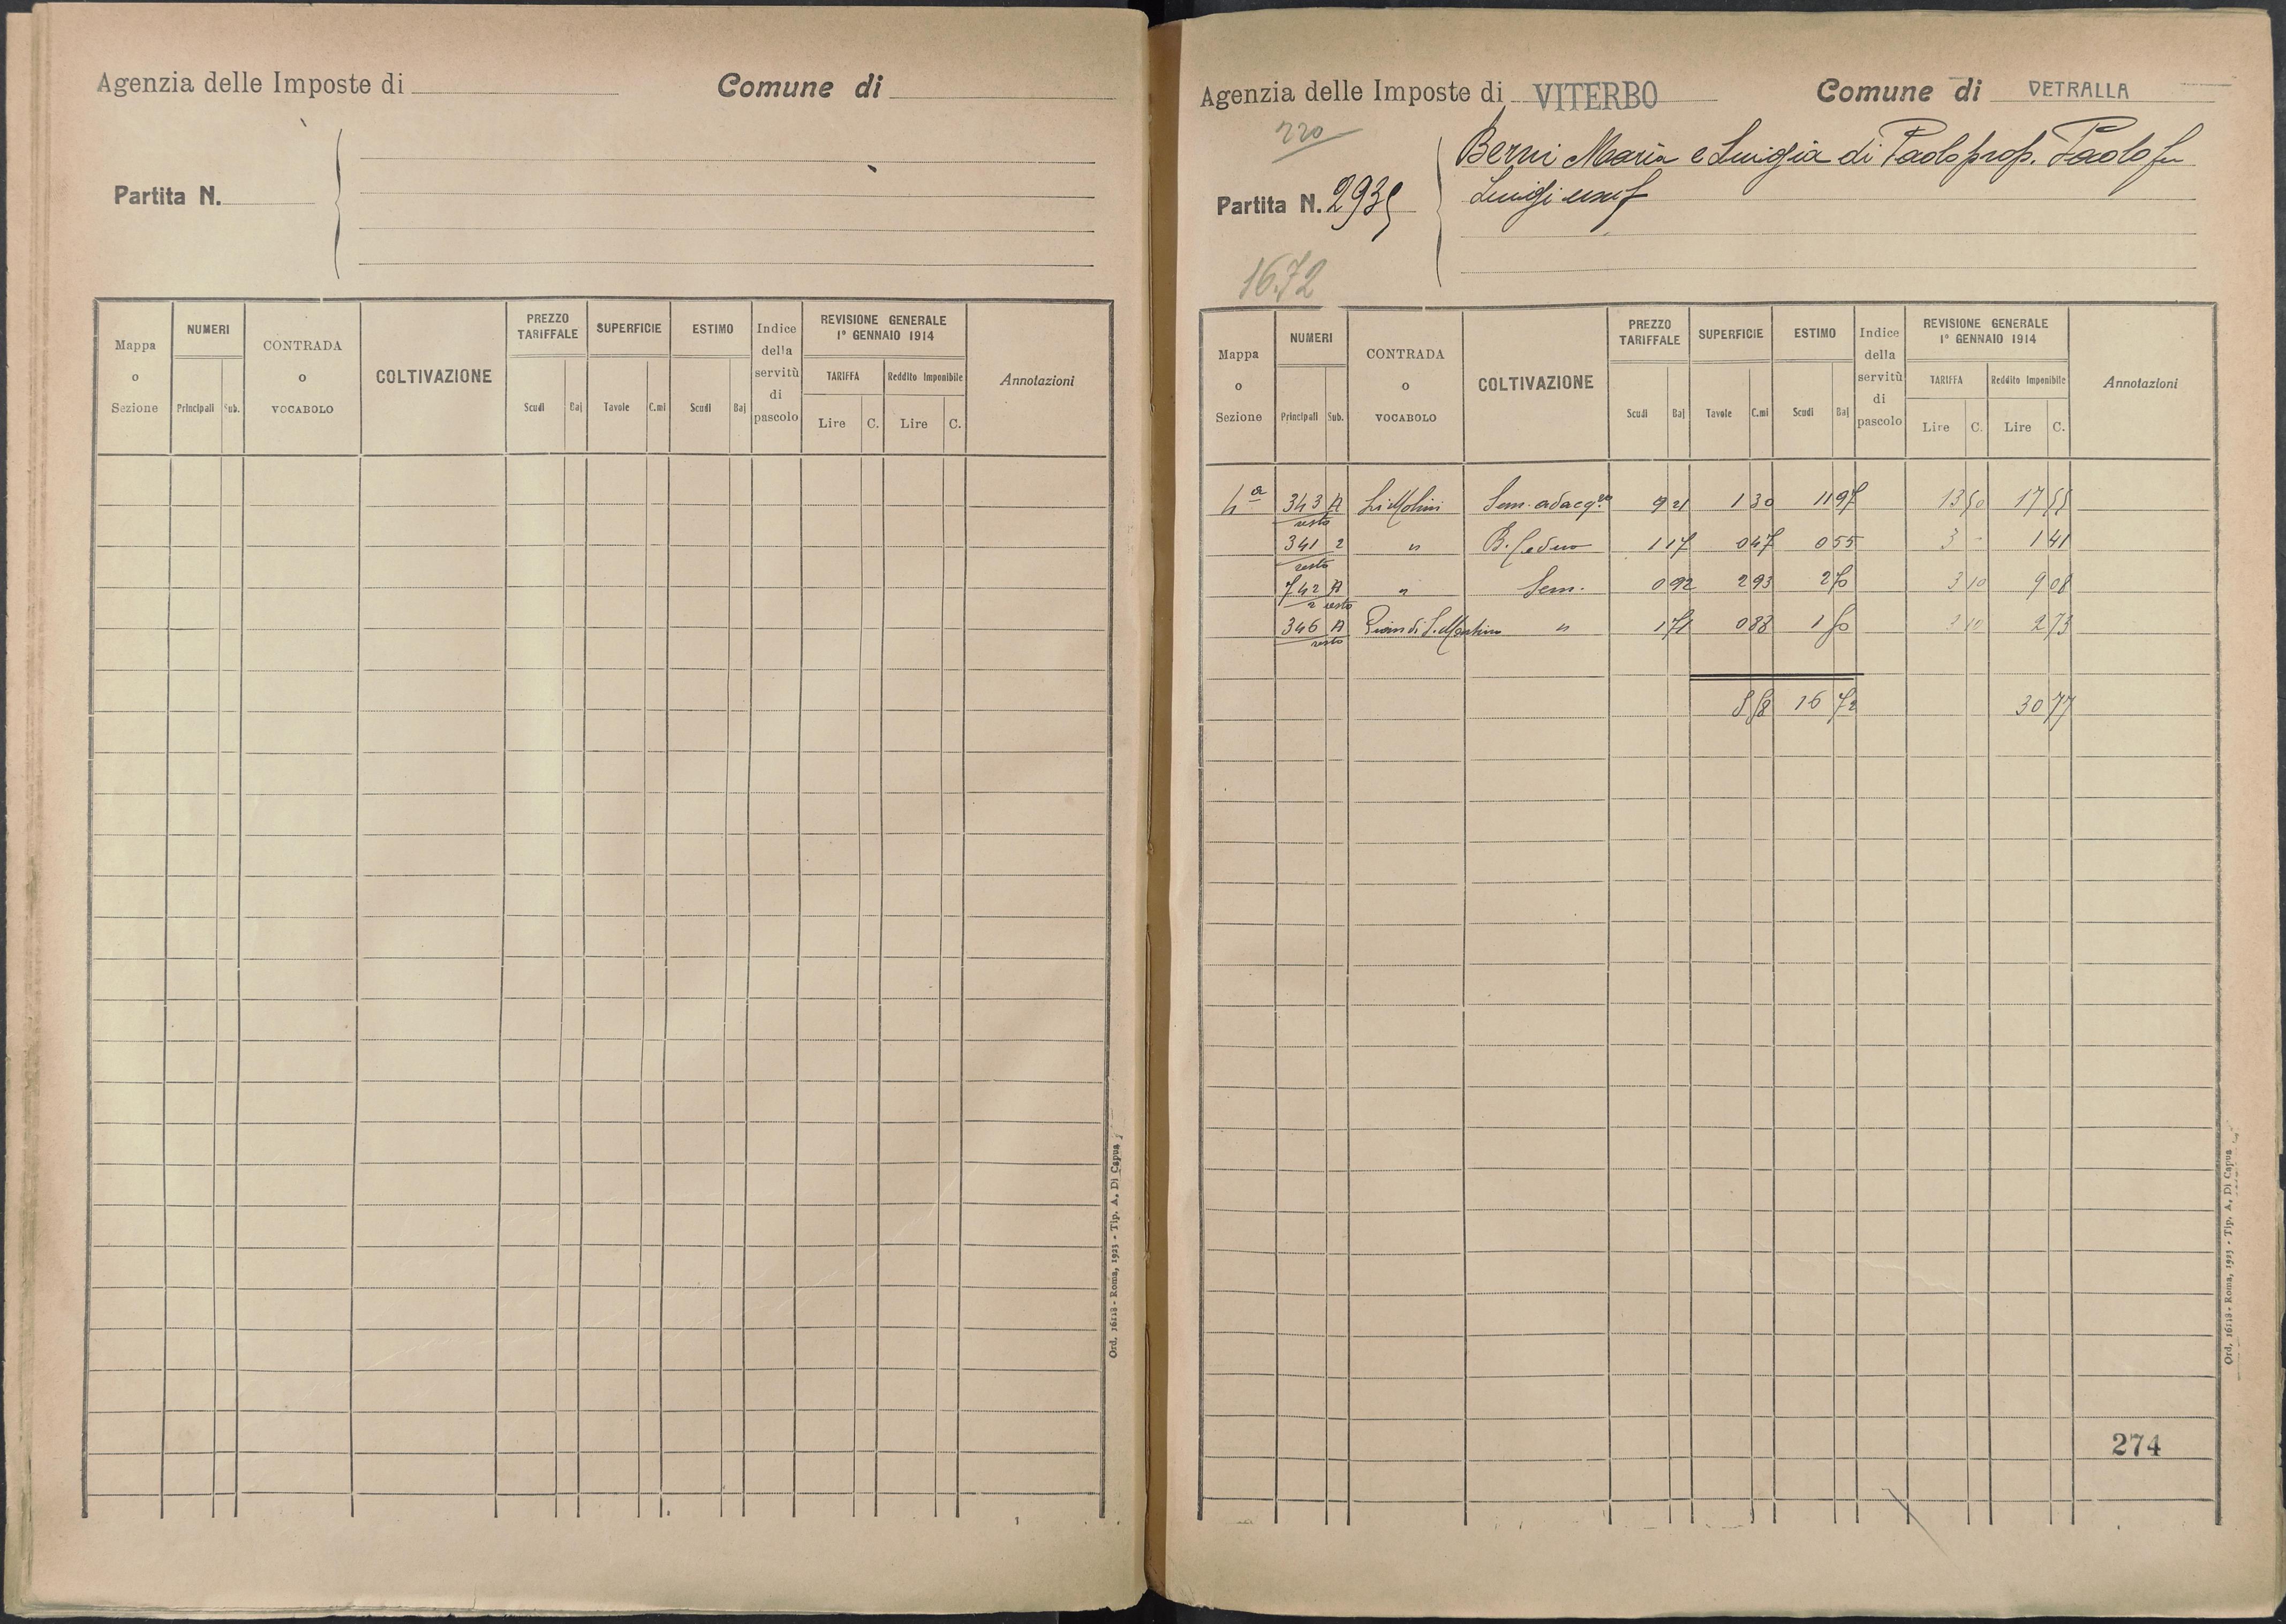 Agenzia delle Imposte di
Comune di
Partita N.
Mappa o Sezione
NUMERI
Principali Sub.
CONTRADA o VOCABOLO
COLTIVAZIONE
PREZZO TARIFFALE
Scudi Baj
SUPERFICIE
Tavole C.mi
ESTIMO
Scudi Baj
Indice della servitù di pascolo
REVISIONE GENERALE
1° GENNAIO 1914
TARIFFA
Lire C.
Reddito Imponibile
Lire C.
Annotazioni
Ord. 16118 - Roma, 1923 - Tip. A. Di Capua
Agenzia delle Imposte di VITERBO
Comune di VETRALLA
220
Partita N. 2935
Berni Maria e Luigia di Paolo prop. Paolo fu
Luigi usuf
1672
Mappa o Sezione
NUMERI
Principali Sub.
CONTRADA o VOCABOLO
COLTIVAZIONE
PREZZO TARIFFALE
Scudi Baj
SUPERFICIE
Tavole C.mi
ESTIMO
Scudi Baj
Indice della servitù di pascolo
REVISIONE GENERALE
1° GENNAIO 1914
TARIFFA
Lire C.
Reddito Imponibile
Lire C.
Annotazioni
4ª 343 A Li Molini Sem. adacq. 9 21 1 30 11 97 13 50 17 55
resto
341 2 " B. Ceduo 1 17 0 47 0 55 3 - 1 41
resto
742 A " Sem. 0 92 2 93 2 70 3 10 9 08
2 resto
346 A Piano di S. Martino " 1 71 0 88 1 50 3 10 2 73
resto
5 58 16 72 30 77
274
Ord. 16118 - Roma, 1923 - Tip. A. Di Capua